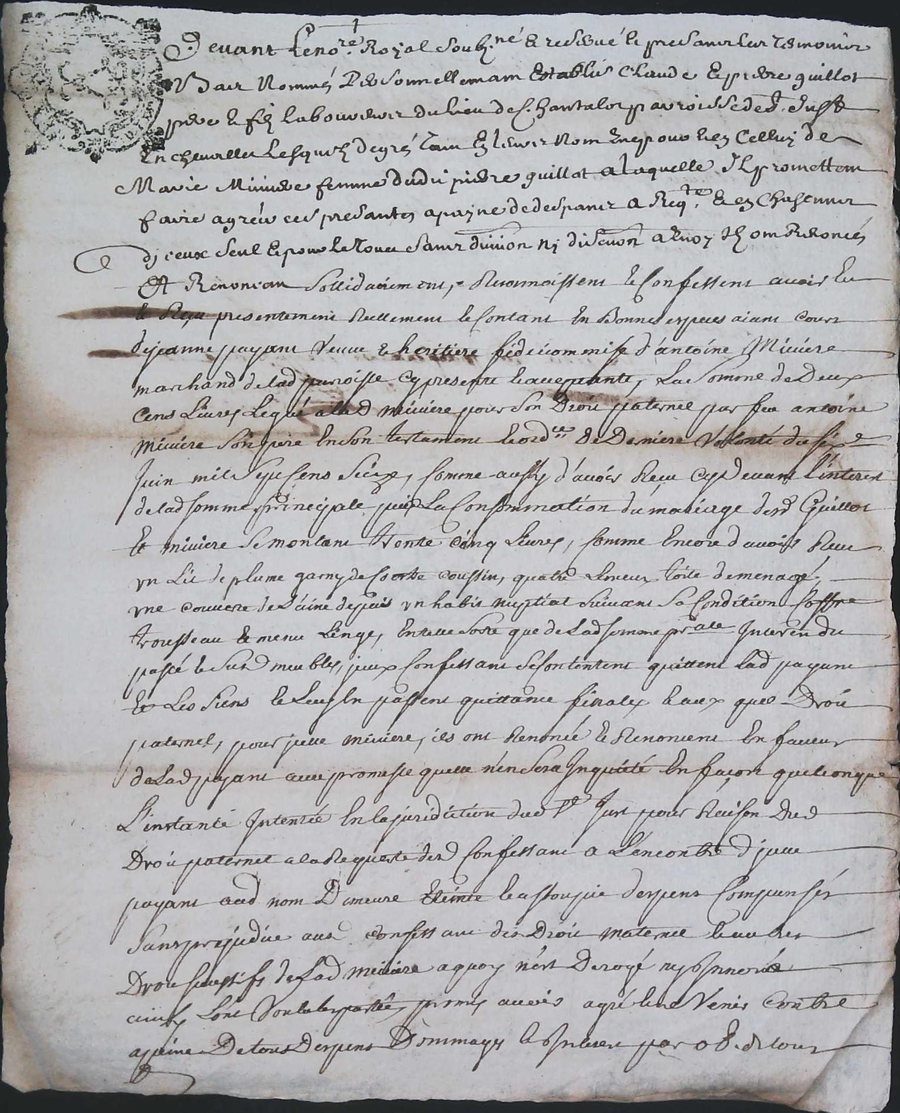 Devant Le no.re Royal Soubz.né & reservé le presant Les Temoins
Bas Nommés Personnellemant Establis Claude & pierre guillot
pere & filz Laboureurs du Lieu de Chantalot parroisse de St Just
En chevallet Lesquelz de grés tant En Leurs Nom En pour & en Celluy de
Marie Miviere femme dudit pierre guillot a laquelle Ilz promettent
faire agréer ces presantes a payne de despans a Req.te & en Chascun
d'iceux Seul & pour Le Tout Sans division ny discution a quoy Ilz ont Renoncés
Et Renoncent Sollidairement, Recognoissent & Confessent avoir Eu
& Reçu presentement Reellement & Contant En Bonnes especes aiant Cours
de jeanne payant veuve & heritiere fideicommise d'antoine Miviere
marchand de lad parroisse cy presente & acceptante, La Somme de Deux
Cens Livres Legué a lad miviere pour Son Droit paternel par feu antoine
Miviere Son pere En Son testament & ord.ce de Derniere Volonté du six.e
Juin mil Sept Cens Seize, Comme aussy d'avoir Reçu Cy devant L'interest
de lad Somme principale, puis La Consommation du mariage desd Guillot
& miviere Se montant trente Cinq Livres, Comme Encore d'avoir Reçu
un Lit de plume garny de Son coussin, quatre Linceux toile de menage,
une Couverte de Laine un habit nuptial Suivant Sa Condition Coffre
trousseau & menu Linge, En telle Sorte que de lad Somme pr.ale Interest du
passé & Susd meubles, iceux Confessant Se Contentent quittent lad payant
& Les Siens & Leur En passent quittance finale, & aux quel Droit
paternel, pour icelle miviere, ils ont Renoncé & Renoncent En faveur
de Lad payant avec promesse quelle n'en Sera Inquiété En façon quelconque
L'instante Intentée En la juridiction dud St Just pour Raison Dud
Droit paternel a la Requeste desd Confessant a L'encontre d'icelle
payant aud nom Demeure Eteinte & assoupie despens Compensés
Sans prejudice aux Confessant des Droit maternel & autres
Droit Successifs de Lad miviere a quoy n'est Derogé ny innové
ainsy L'ont Voulu les parties, promis avoir agré & ne Venir Contre
a peine De tous Despens Dommages & Interest par ob. de tous